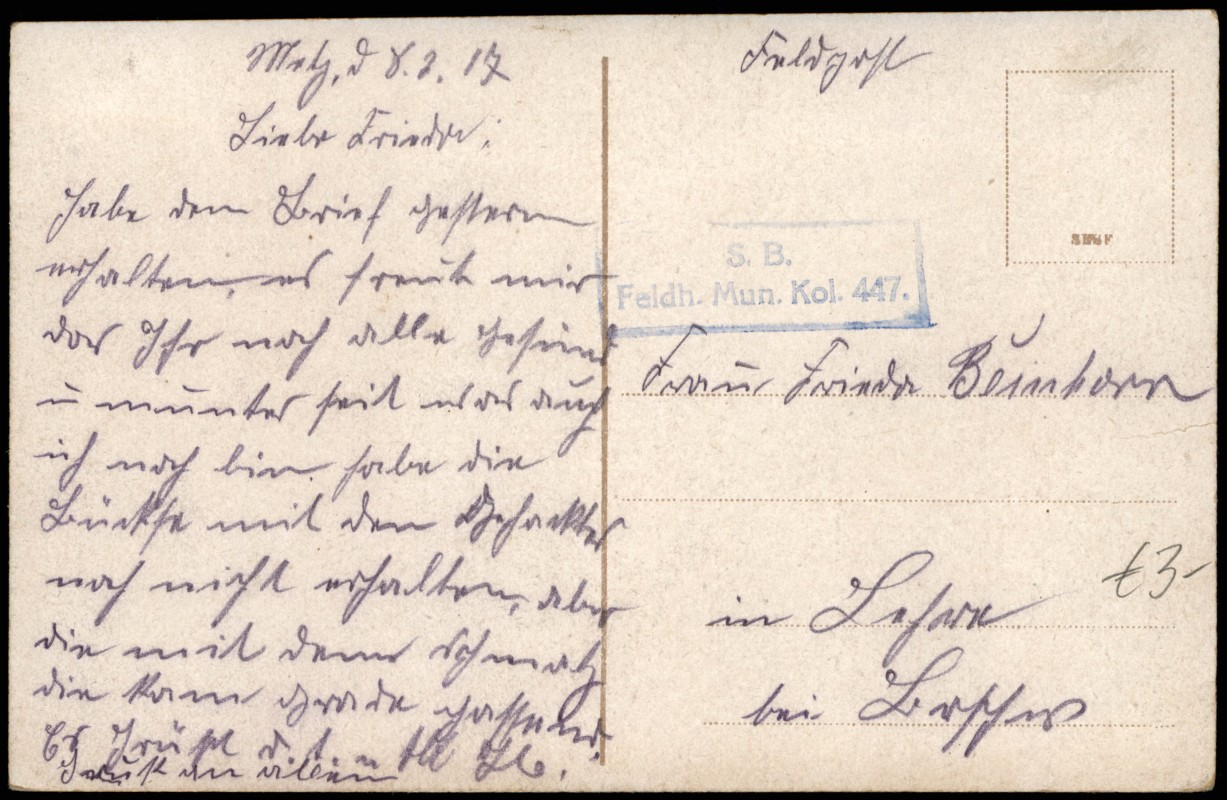 Metz, d 8.2.17
Liebe Frieda,
habe dem Brief gestern
erhalten, es freut mir
das Ihr noch alle gesund
u munter seit was auch
ich noch bin. habe die
Bückse mit den Gehacktes
noch nicht erhalten, aber
die mit dem schmalz
die kam grade passend.
Es Grüßt d.
Gruß an allen
Feldpost
S. B.
Feldh. Mun. Kol. 447.
Frau Frieda Beinhorn
in Lehre
bei Brschw
£3-